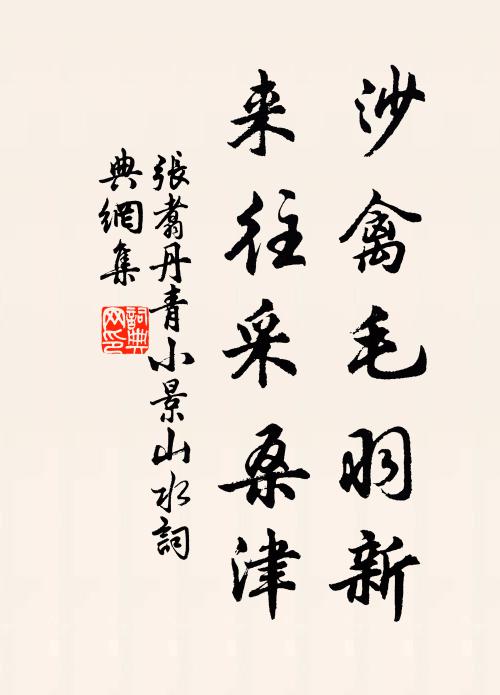 沙禽毛羽新
来往采桑津
張翥丹青小景山水詞
典網集
詞典
网印